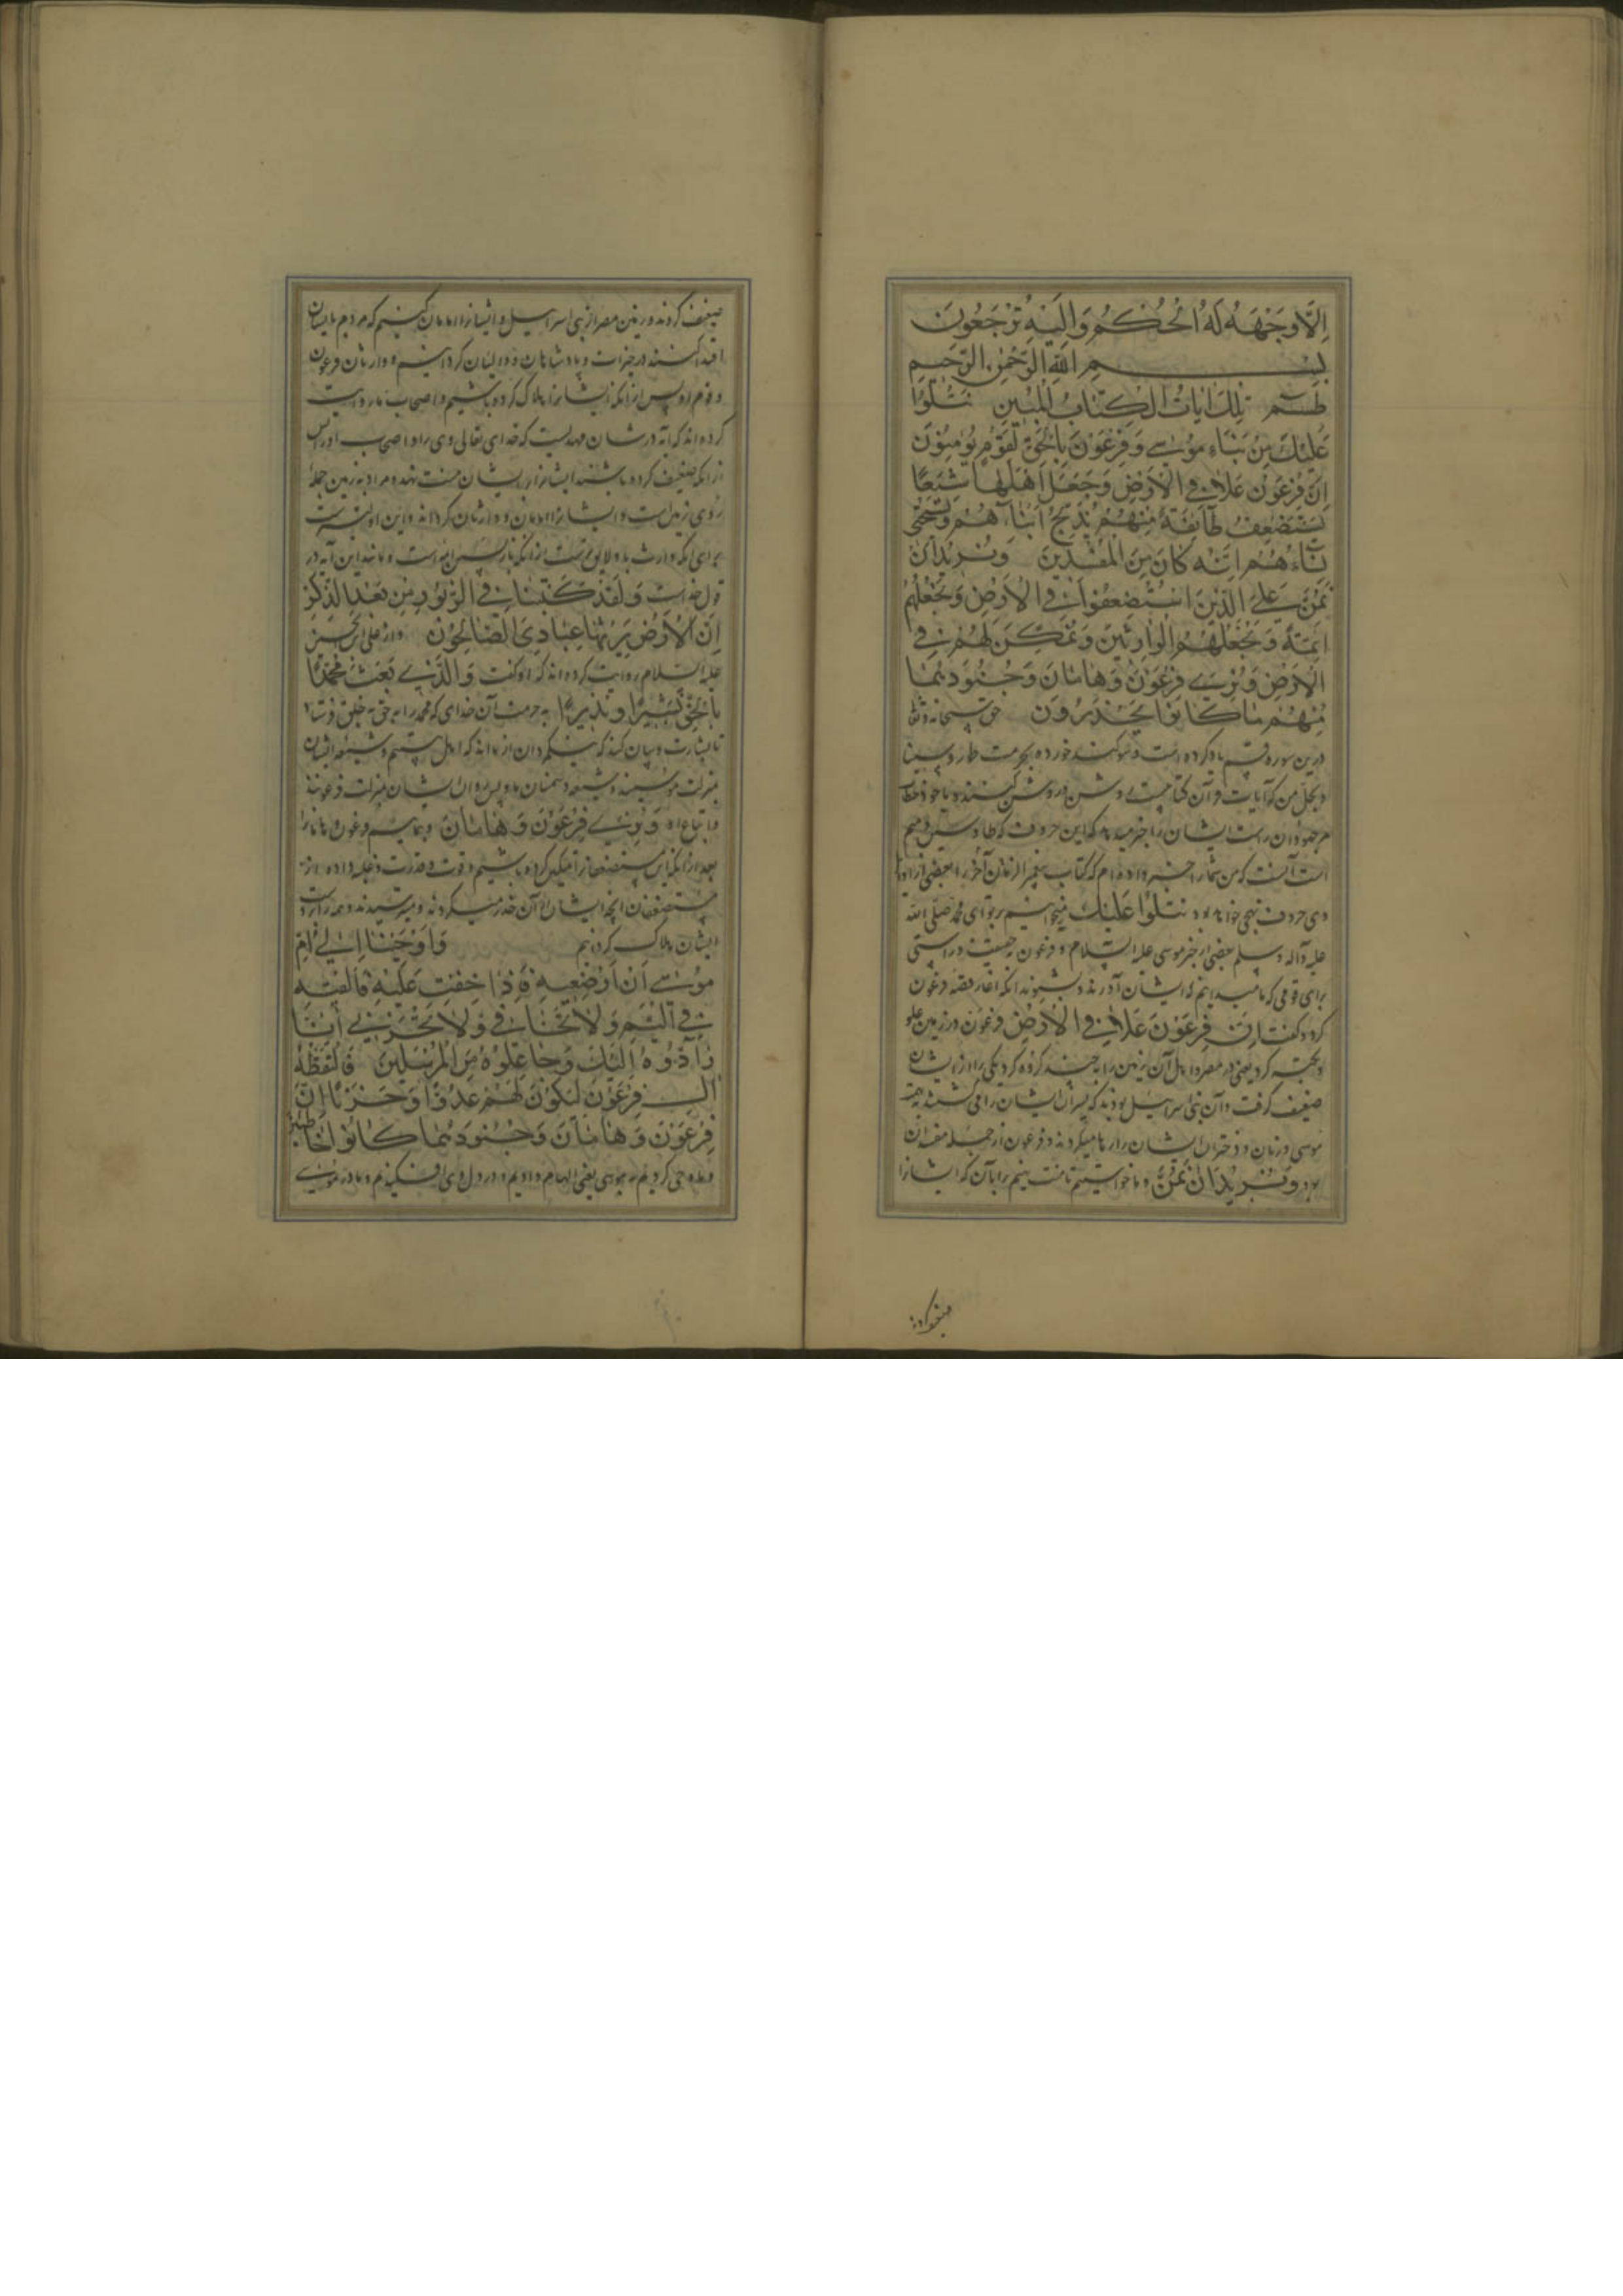 اِلَّا وَجْهَهُ لَهُ الْحُكْمُ وَاِلَيْهِ تُرْجَعُونَ
بسم الله الرحمن الرحيم
طسم تِلْكَ اٰيَاتُ الْكِتَابِ الْمُبِينِ نَتْلُوا
عَلَيْكَ مِنْ نَبَاءِ مُوسٰى وَفِرْعَوْنَ بِالْحَقِّ لِقَوْمٍ يُؤْمِنُوْنَ
اِنَّ فِرْعَوْنَ عَلَا فِى الْاَرْضِ وَجَعَلَ اَهْلَهَا شِيَعًا
يَسْتَضْعِفُ طَآئِفَةً مِنْهُمْ يُذَبِّحُ اَبْنَآءَهُمْ وَيَسْتَحْيِى
نِسَاءَهُمْ اِنَّهُ كَانَ مِنَ الْمُفْسِدِينَ وَنُرِيدُ اَنْ
نَمُنَّ عَلَى الَّذِينَ اسْتُضْعِفُوْا فِى الْاَرْضِ وَنَجْعَلَهُمْ
اَئِمَّةً وَنَجْعَلَهُمُ الْوَارِثِينَ وَنُمَكِّنَ لَهُمْ فِى
الْاَرْضِ وَنُرِىَ فِرْعَوْنَ وَهَامَانَ وَجُنُودَهُمَا
مِنْهُمْ مَا كَانُوا يَحْذَرُونَ حق سبحانه وتعالی
درین سوره قسم یاد کرده است و سوکند خورده بحرمت طا و سینا
من که آیات قرآن کتابیست روشن و روشن کننده و یا خود خطاب
مر جهودان راست ایشان را خبر میدهد که این حروف که طا و سین و میم
است آنست که من شما را خبر داده ام که کتاب پیغمبر آخر الزمان را بعضی از
وی حروف تهجی خواهد بود نَتْلُوا عَلَيْكَ میخوانیم بر تو ای محمد صلی الله
علیه وآله وسلم بعضی از خبر موسی علیه السلام و فرعون به حقیقت و راستی
برای قومی که ما میدانیم که ایشان آورند و بشنوند آنکه آغاز قصه فرعون
کرد و کفت اِنَّ فِرْعَوْنَ عَلَا فِى الْاَرْضِ فرعون در زمین علو
کرد یعنی در مصر و اهل آن زمین را به چند کروه کرد یکی را از ایشان
ضعیف کرفت و آن بنی اسرائیل بودند که پسران ایشان را می کشت
موسی و زنان و دختران ایشان را رها میکردند و فرعون از جمله مفسدان
بود وَنُرِيدُ اَنْ نَمُنَّ و ما خواستیم تا منت نهیم بر آنان که ایشانرا
ضعیف کردند
ضعیف کردند در زمین مصر از بنی اسرائیل و ایشانرا امامان کنیم که مردم بایشان
اقتدا کنند در خیرات و پادشاهان و والیان کردانیم و وارثان فرعون
و قوم او پس از آنکه ایشانرا هلاک کرده باشیم و اصحاب ما روایت
کرده اند که آیه در شان مهدیست که خدای تعالی وی را و اصحاب او را پس
از آنکه ضعیف کرده باشند ایشانرا بر ایشان منت نهد و مراد به زمین جمله
روی زمین است و ایشانرا امامان و وارثان کرداند و این اولیتر است
برای آنکه وارث
قول خداست وَلَقَدْ كَتَبْنَا فِى الزَّبُورِ مِنْ بَعْدِ الذِّكْرِ
اِنَّ الْاَرْضَ يَرِثُهَا عِبَادِىَ الصَّالِحُوْنَ و از علی بن الحسین
علیه السلام روایت کرده اند که او کفت وَالَّذِى بَعَثَ مُحَمَّدًا
بِالْحَقِّ بَشِيرًا وَنَذِيرًا به حرمت آن خدای که محمد را به حق به خلق فرستاد
تا بشارت و بیان کند که نیکمردان از ما اند که اهل بیتیم و شیعه ایشان
بمنزلت موسیند و شیعه و دشمنان ما و پس روان ایشان بمنزلت فرعونند
و اتباع او وَنُرِىَ فِرْعَوْنَ وَهَامَانَ و نماییم فرعون و هامانرا
بعد از آنکه این مستضعفانرا تمکین کرده باشیم و قوت و قدرت و غلبه داده از
مستضعفان آنچه ایشان از آن حذر میکردند و میترسیدند
ایشان هلاک کردانیم وَاَوْحَيْنَا اِلٰى اُمِّ
مُوسٰى اَنْ اَرْضِعِيهِ فَاِذَا خِفْتِ عَلَيْهِ فَاَلْقِيهِ
فِى الْيَمِّ وَلَا تَخَافِى وَلَا تَحْزَنِى اِنَّا
رَآدُّوهُ اِلَيْكِ وَجَاعِلُوهُ مِنَ الْمُرْسَلِينَ فَالْتَقَطَهُ
اٰلُ فِرْعَوْنَ لِيَكُوْنَ لَهُمْ عَدُوًّا وَحَزَنًا اِنَّ
فِرْعَوْنَ وَهَامَانَ وَجُنُودَهُمَا كَانُوْا خَاطِئِينَ
وحی کردیم موسی یعنی الهام دادیم و در دل وی افکندیم و مادر موسی